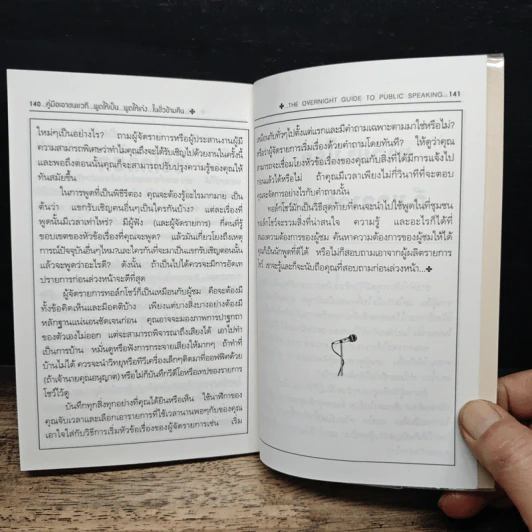 140...คู่มือเอาชนะเวที...พูดให้เป็น...พูดให้เก่ง...ในชั่วข้ามคืน...
ใหม่ๆเป็นอย่างไร? ถามผู้จัดรายการหรือผู้ประสานงานผู้มี
ความสามารถพิเศษว่าทำไมคุณถึงจะได้รับเชิญไปด้วยงานในครั้งนี้
และพอถึงตอนนั้นคุณก็จะสามารถปรับปรุงความรู้ของคุณให้
ทันสมัยขึ้น
ในการพูดที่เป็นพิธีรีตอง คุณจะต้องรู้อะไรมากมาย เป็น
ต้นว่า แขกรับเชิญคนอื่นๆเป็นใครกันบ้าง? แต่ละเรื่องที่
พูดนั้นมีเวลาเท่าไหร่? มีผู้ฟัง (และผู้จัดรายการ) กี่คนที่รู้
ขอบเขตของหัวข้อเรื่องที่คุณจะพูด? แล้วมันเกี่ยวโยงถึงเหตุ
การณ์ปัจจุบันอื่นๆไหม?และใครกันที่จะมาเป็นแขกรับเชิญตอนนั้น
แล้วจะพูดว่าอะไรดี? ดังนั้น ถ้าเป็นไปได้ควรจะมีการอัดเท
ปรายการก่อนล่วงหน้าจะดีที่สุด
ผู้จัดรายการทอล์กโชว์ก็เป็นเหมือนกับผู้ชม คือจะต้องมี
ทั้งข้อคิดเห็นและมีอคติบ้าง เพียงแต่บางสิ่งบางอย่างต้องมี
หลักฐานแน่นอนชัดเจนก่อน คุณอาจจะมองภาพการปาฐกถา
ของตัวเองไม่ออก แต่จะสามารถพิจารณาถึงเสียงได้ เอาไปทำ
เป็นการบ้าน หมั่นดูหรือฟังการกระจายเสียงให้มากๆ ถ้าทำที่
บ้านไม่ได้ ควรจะนำวิทยุหรือทีวีเครื่องเล็กๆติดมาที่ออฟฟิตด้วย
(ถ้าเจ้านายคุณอนุญาต) หรือไม่ก็บันทึกวิดีโอหรือเทปของรายการ
โชว์ไว้ดู
บันทึกทุกสิ่งทุกอย่างที่คุณได้ยินหรือเห็น ใช้นาฬิกาของ
คุณจับเวลาและเลือกเอารายการที่ใช้เวลานานพอๆกับของคุณ
เอาใจใส่กับวิธีการเริ่มหัวข้อเรื่องของผู้จัดรายการเช่น เริ่ม
...THE OVERNIGHT GUIDE TO PUBLIC SPEAKING...141
เหมือนกับทั่วๆไปตั้งแต่แรกและมีคำถามเฉพาะตามมาใช่หรือไม่?
หรือว่าผู้จัดรายการเริ่มเรื่องด้วยคำถามโดยทันที? ให้ดูว่าคุณ
สามารถจะเชื่อมโยงหัวข้อเรื่องของคุณกับสิ่งที่ได้มีการแจ้งไป
ก่อนแล้วได้หรือไม่ ถ้าคุณมีเวลาเพียงไม่กี่วินาทีที่จะตอบ
คุณจะจัดการอย่างไรกับคำถามนั้น
ทอล์กโชว์มักเป็นวิธีสุดท้ายที่คนจะนำไปใช้พูดในที่ชุมชน
ทอล์กโชว์จะรวมสิ่งที่น่าสนใจ ความรู้ และอะไรก็ได้ที่
สนองความต้องการของผู้ชม ค้นหาความต้องการของผู้ชมให้ได้
คุณก็เป็นนักพูดที่ดีได้ หรือไม่ก็สอบถามเอาจากผู้ผลิตรายการ
โชว์ เขาจะรู้และก็จะนับถือคุณที่สอบถามก่อนล่วงหน้า...